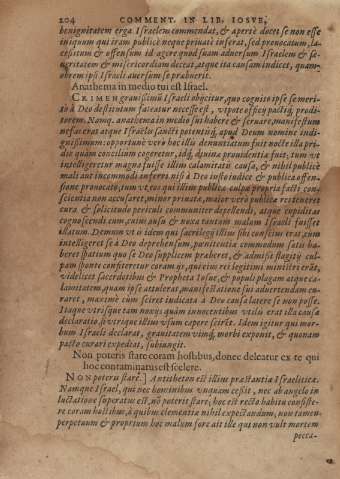 204 COMMENT. IN LIB. IOSVE,
benignitatem erga Israelem commendat, & apertè docet se non esse
iniquum qui iram publicè neque priuatè inserat, sed prouocatum, la-
cessitum & offensum id agere quod suam aduersum Israelem &
& misericordiam deceat, atque ita causam indicet, quam-
obrem ipsi Israeli auersum se præbuerit.
Anathema in medio tui est Israel.
CRIMEN grauissimũ Israeli obijcitur, quo cognito ipse se meri-
tò à Deo destitutum fateatur necesse est, vtpote officij pactiq́; prodi-
torem. Namq́; anathema in medio sus habere & seruare, manifestum
nefas erat atque Israelis sancti potentiq́; apud Deum nomine indi-
gnissimum: opportunè verò hoc illis denuntiatum fuit nocte illa pri-
die quàm concilium cogeretur, idq́; diuina prouidentia fuit, tum vt
intelligeretur magno fuisse illum calamitatis causa, & nihil publicè
mali aut incommodi inferri nisi à Deo iusto iudice & publica offen-
sione prouocato, tum vt eos qui illius publica culpa propria facti con-
scientia non accusaret, minor priuata, maior verò publica retineret
cura & solicitudo periculi communiter depellendi, atque cupiditas
cognoscendi cum, cuius ausu & noxa tantum malum Israeli fuisset
illatum. Demum vt is idem qui sacrilegij illius sibi conscius erat, cum
intelligeret se à Deo deprehensum, pœnitentia commodum satis ha-
beret spatium quo se Deo supplicem præberet, & admissæ flagitij cul-
pam sponte confiteretur coram ijs, quibus rei legitimi ministri erãt,
videlicet sacerdotibus & Propheta Iosue, & populi plagam atque ca-
lamitatem, quam ipse attulerat, manifestatione sui aduertendam cu-
raret, maximè cùm sciret iudicata à Deo causa latere se non posse.
Itaque vtrisque tam noxijs quàm innocentibus vtilis erat illa causæ
declaratio, si vterque illius vsum capere sciret. Idem igitur qui mor-
bum Israeli declarat, grauitatem vimq́; morbi exponit, & quonam
pacto curari expediat, subiungit.
Non poteris stare coram hostibus, donec deleatur ex te qui
hoc contaminatus est scelere.
NON poteris stare.] Antitheton est illius præstantiæ Israeliticæ.
Namque Israel, qui nec hominibus vnquam cessit, nec ab angelo in
luctatione superatus est, nõ poteris stare; hoc est recto habitu consiste-
re coram hostibus, à quibus clementiæ nihil expectandum, non tamen
perpetuum & proprium hoc malum fore ait ille qui non vult mortem
pecca-